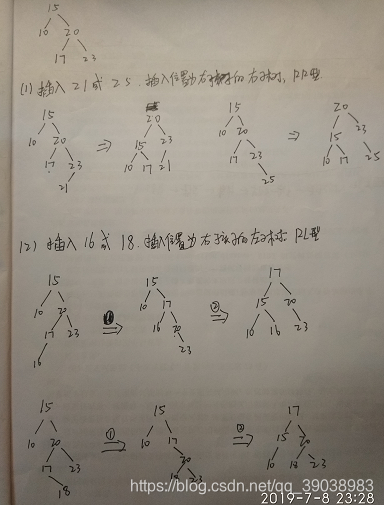 15
10 20
17 23
(1) 插入 21 或 25. 插入位置为右孩子的右子树, RR型
15 20 15 20
10 20 ⇒ 15 23 10 20 ⇒ 15 23
17 23 10 17 21 17 23 10 17 25
21 25
(2) 插入 16 或 18. 插入位置为右孩子的左子树. RL型
15 15 17
10 20 ① ⇒ 10 17 ② ⇒ 15 20
17 23 16 20 10 16 23
16 23
15 15 17
10 20 ① ⇒ 10 17 ② ⇒ 15 20
17 23 20 10 18 23
18 18 23
https://blog.csdn.net/qq_39038983
2019-7-8 23:28